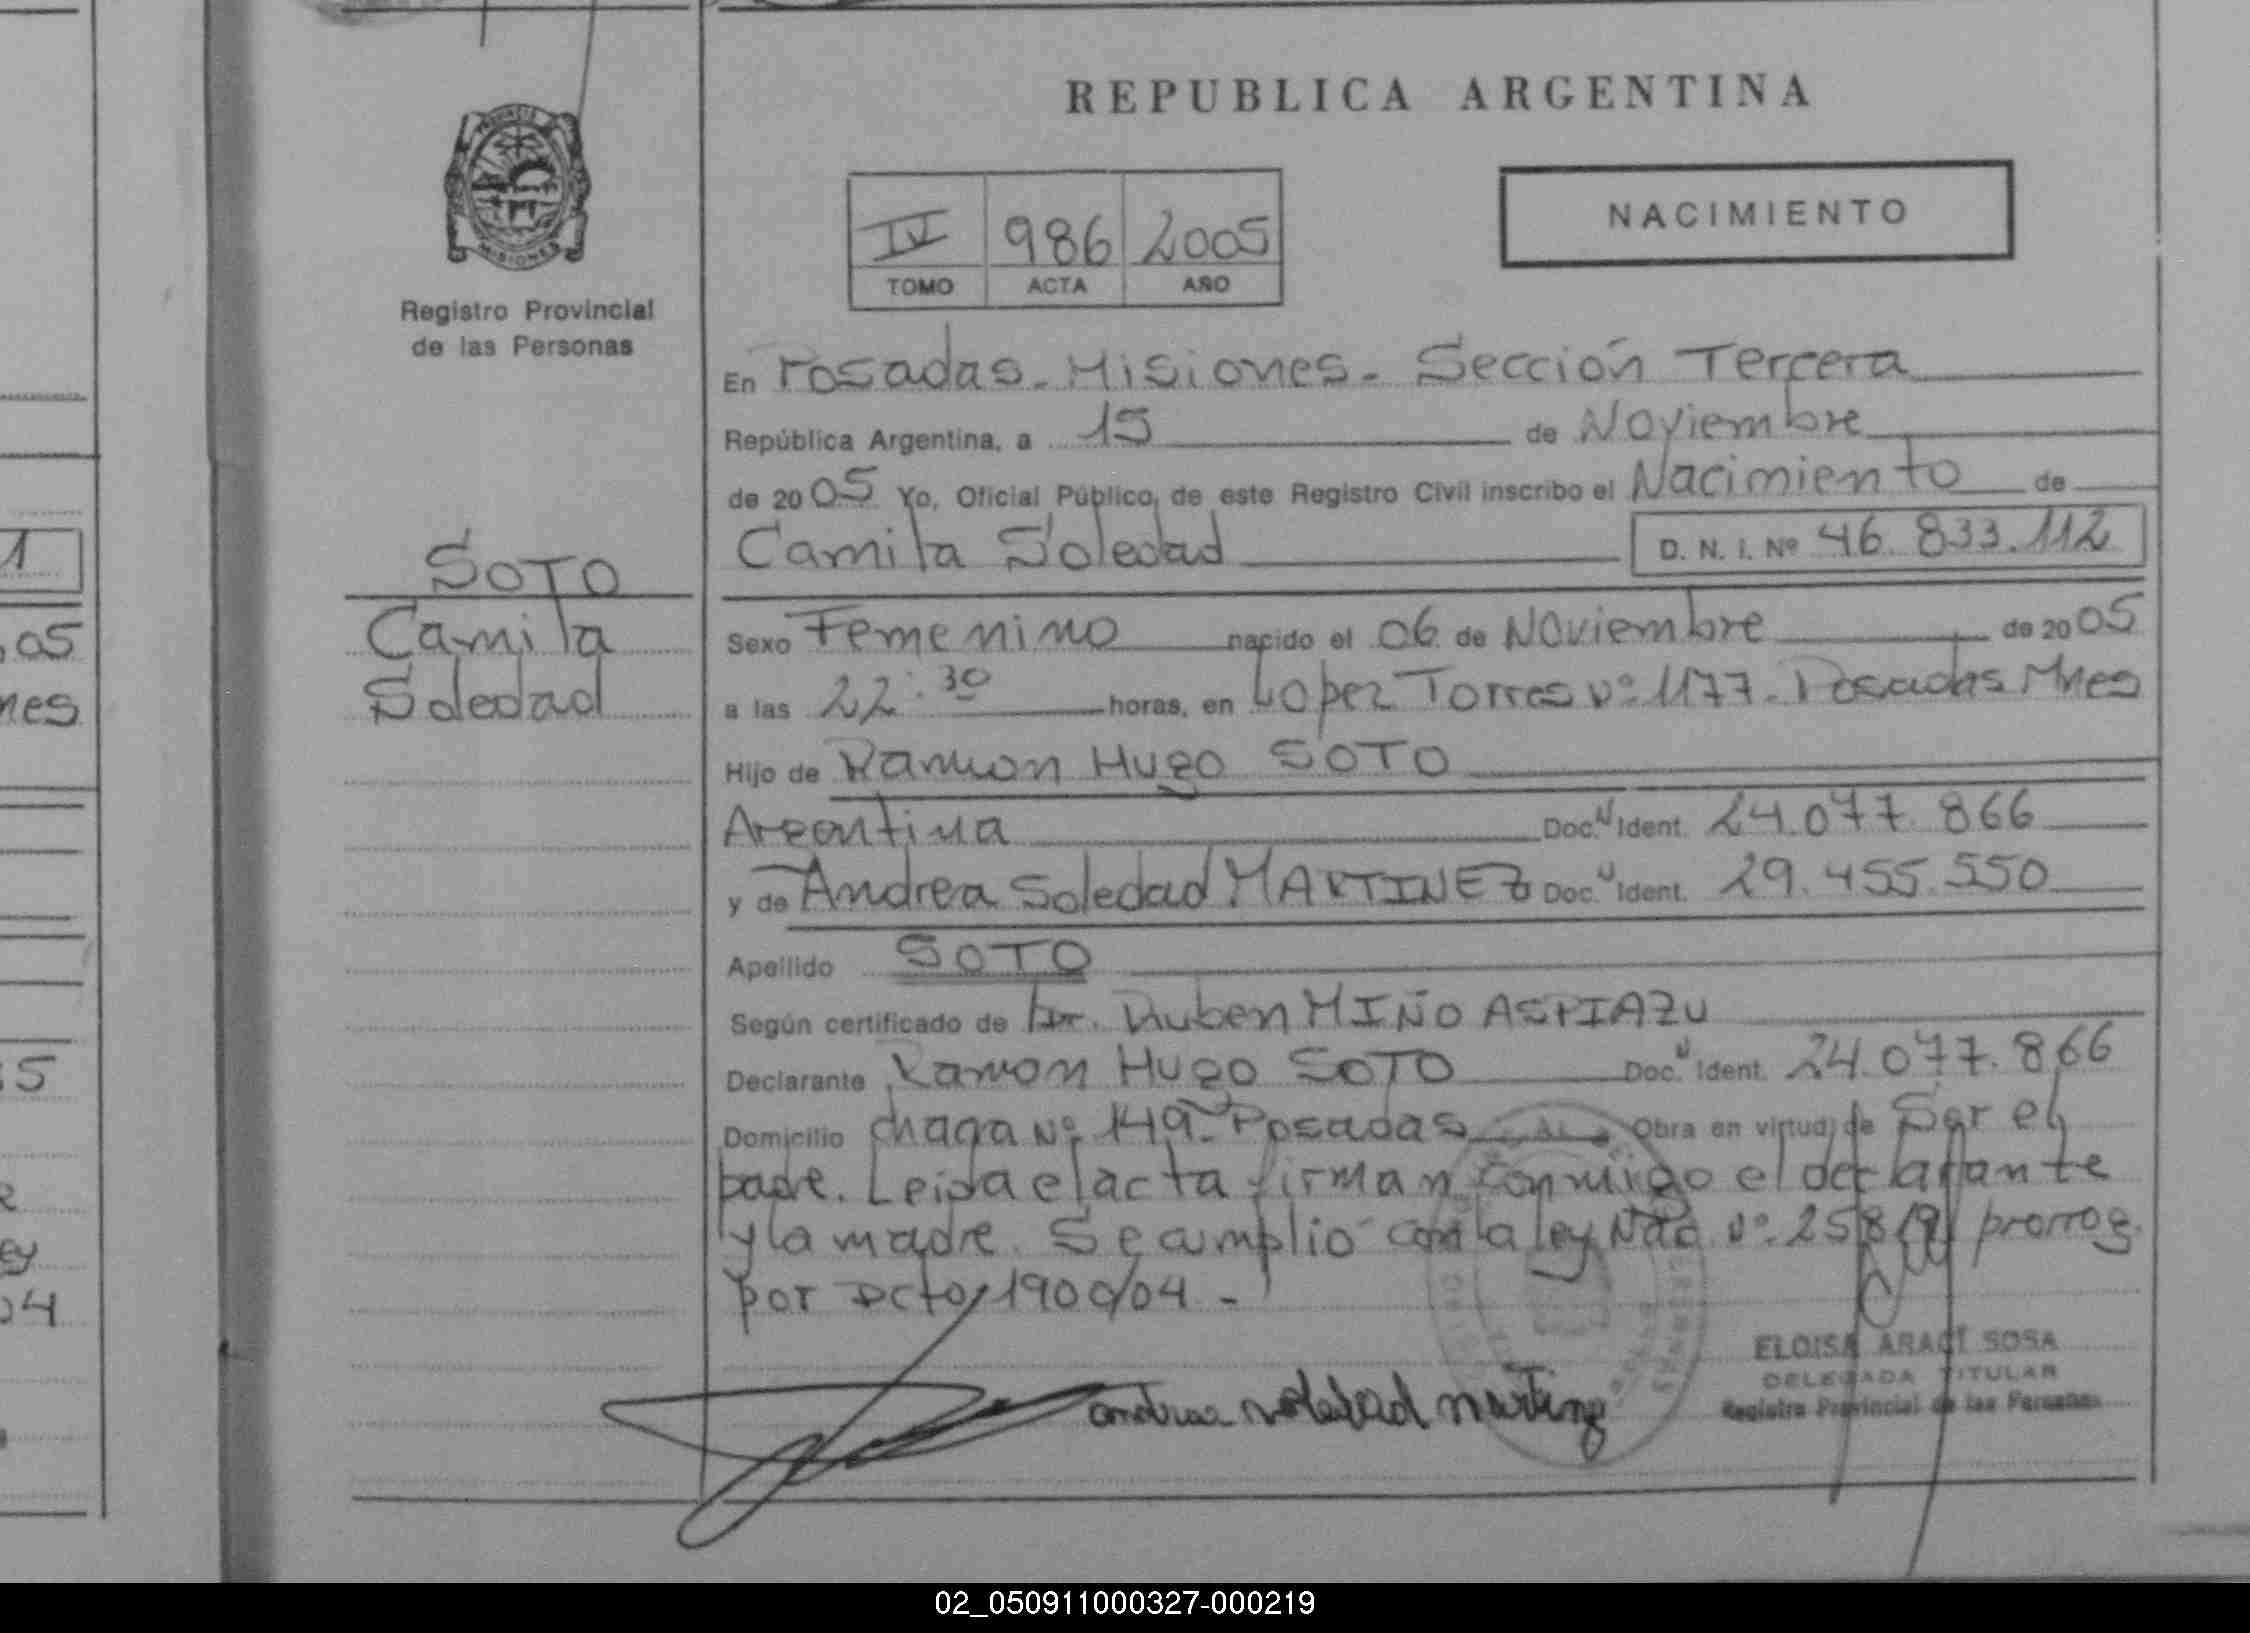 REPUBLICA ARGENTINA
PROVINCIA DE MISIONES
Registro Provincial
de las Personas
IV 986 2005
TOMO ACTA AÑO
NACIMIENTO
En Posadas - Misiones - Sección Tercera
República Argentina, a 15 de Noviembre
de 2005 Yo, Oficial Público, de este Registro Civil inscribo el Nacimiento de
Camila Soledad D. N. I. Nº 46.833.112
SOTO
Camila
Soledad
Sexo Femenino nacido el 06 de Noviembre de 2005
a las 22:30 horas, en Lopez Torres Nº 1177. Posadas Mnes
Hijo de Ramon Hugo SOTO
Argentina Doc. N Ident. 24.077.866
y de Andrea Soledad MARTINEZ Doc. N Ident. 29.455.550
Apellido SOTO
Según certificado de Dr. Ruben MIÑO ASPIAZU
Declarante Ramon Hugo SOTO Doc. N Ident. 24.077.866
Domicilio chaga Nº 149 - Posadas Obra en virtud de Ser el
padre. Leida el acta firman conmigo el declarante
y la madre. Se cumplió con la ley Nac. Nº 25819 prorrog.
por Dcto 1900/04 -
andrea soledad martinez
ELOISA ARACI SOSA
DELEGADA TITULAR
Registro Provincial de las Personas
1
05
nes
5
ey
04
02_050911000327-000219